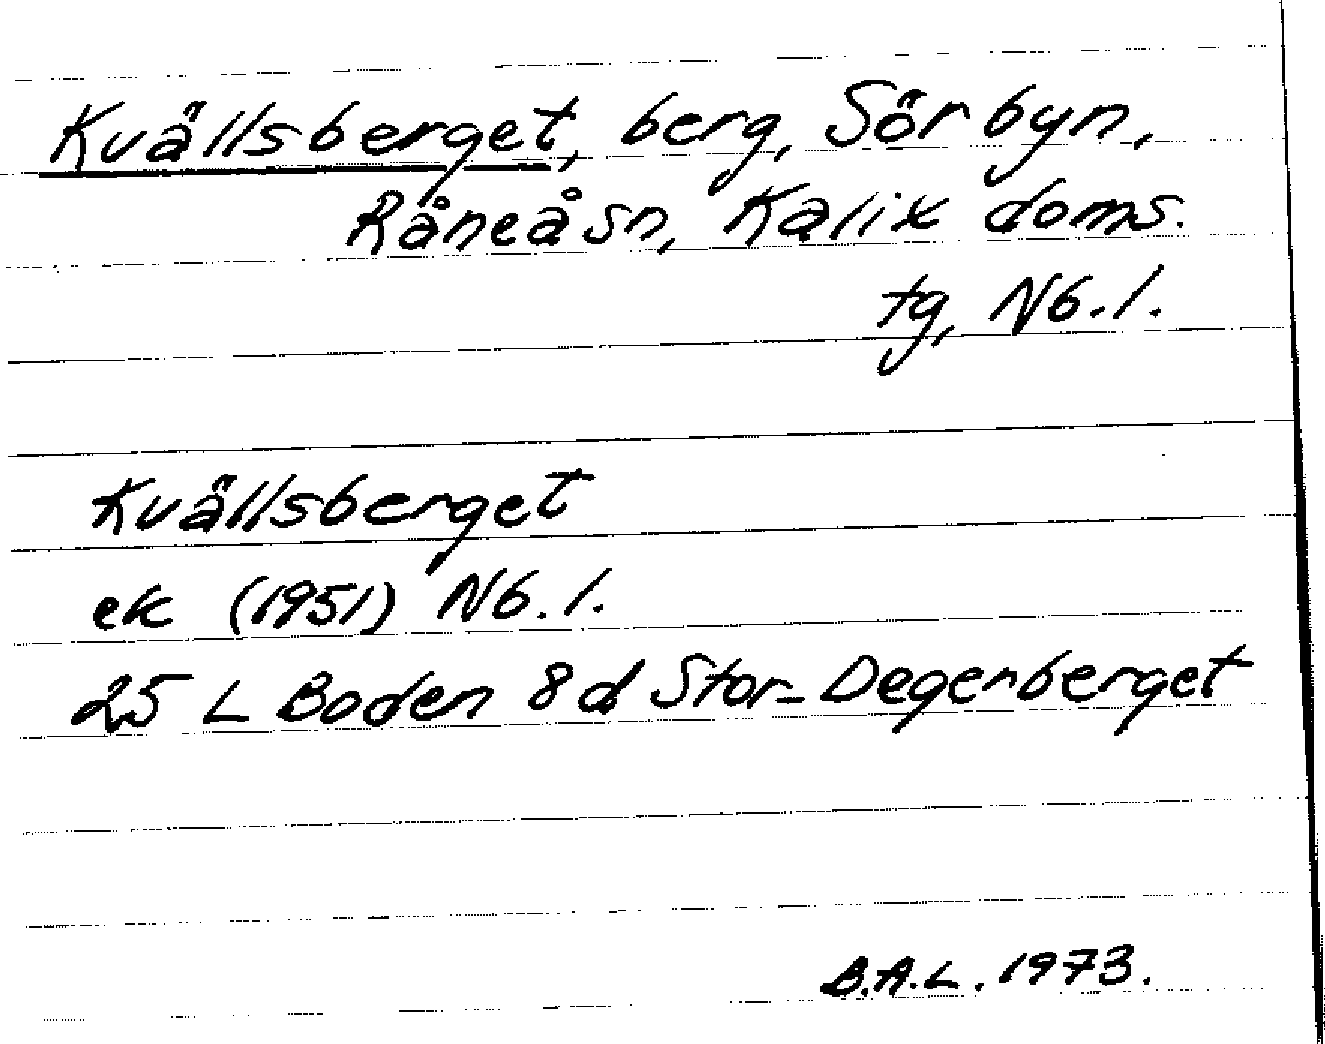 Kvällsberget, berg, Sörbyn,
Råneå sn, Kalix doms.
tg, Nb.l.
Kvällsberget
ek (1951) Nb.l.
25 L Boden 8d Stor-Degerberget
B.A.L. 1973.